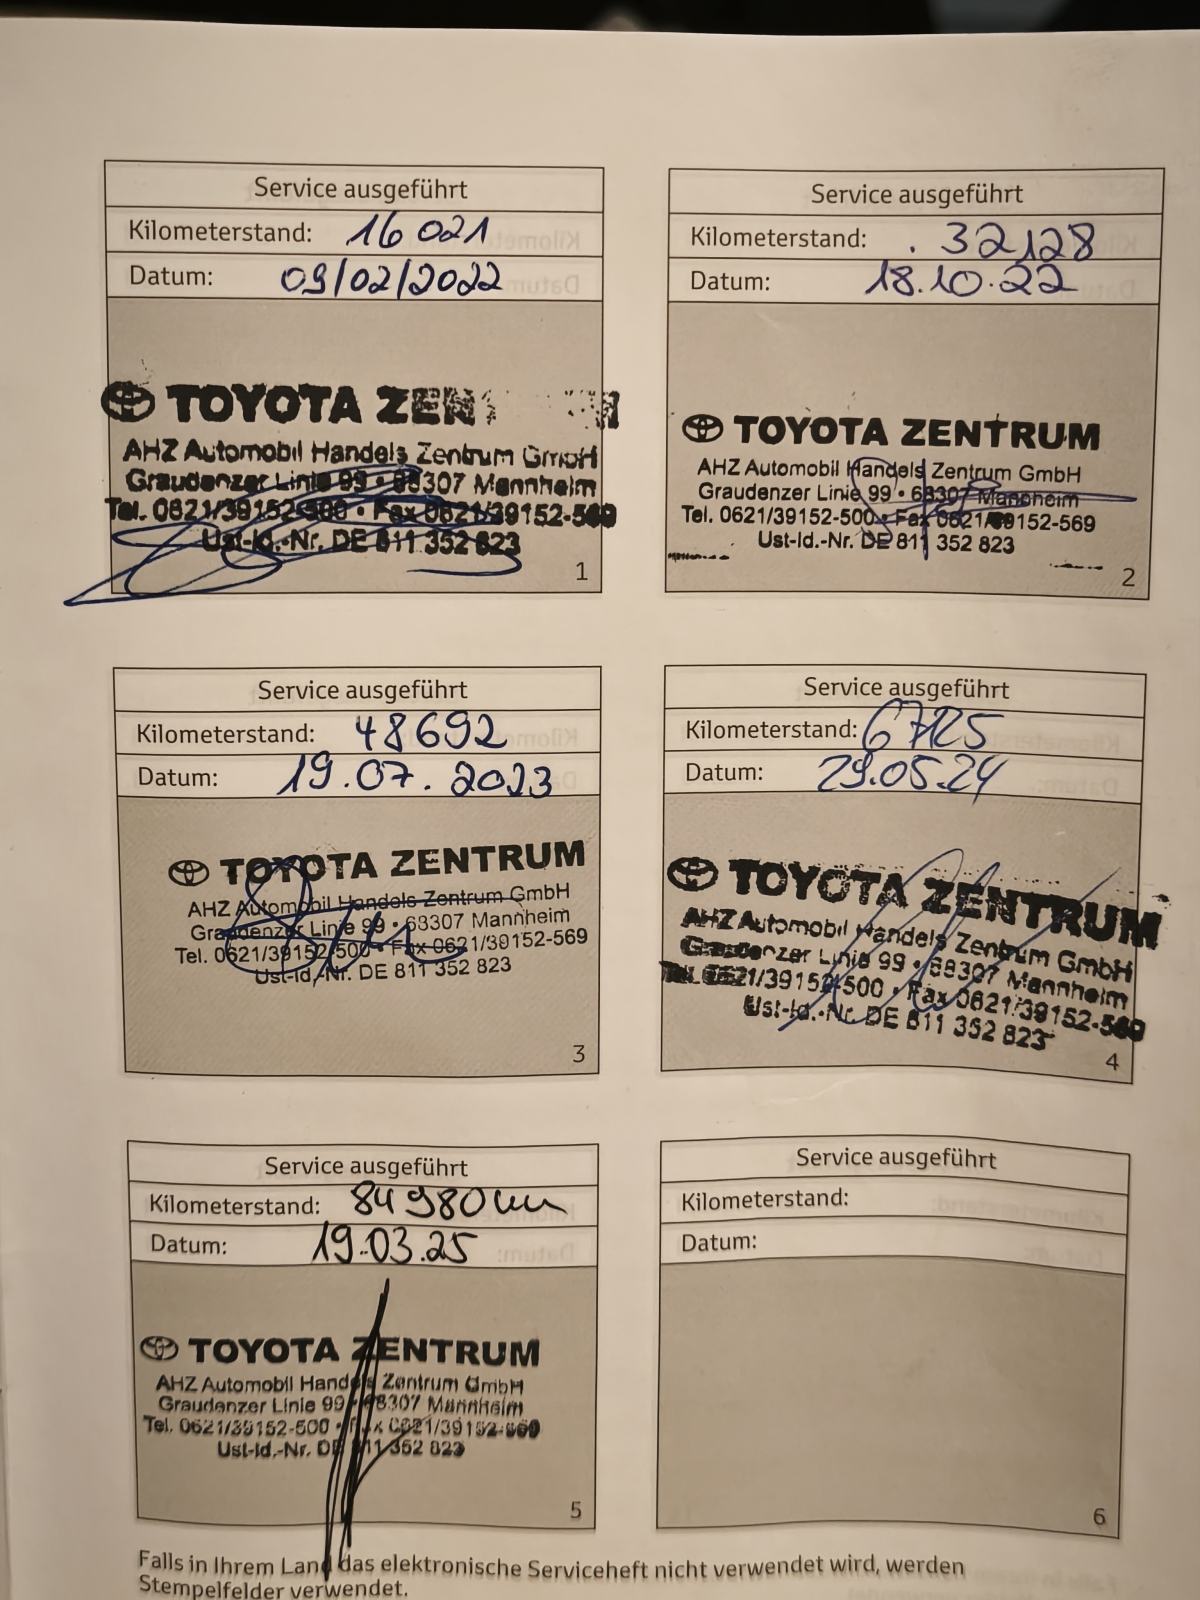 Service ausgeführt
Kilometerstand: 16021
Datum: 09/02/2022
TOYOTA ZEN
AHZ Automobil Handels Zentrum GmbH
Graudenzer Linie 99 • 68307 Mannheim
Tel. 0621/39152-500 • Fax 0621/39152-569
Ust-Id.-Nr. DE 811 352 823
1
Service ausgeführt
Kilometerstand: 32128
Datum: 18.10.22
TOYOTA ZENTRUM
AHZ Automobil Handels Zentrum GmbH
Graudenzer Linie 99 • 68307 Mannheim
Tel. 0621/39152-500 • Fax 0621/39152-569
Ust-Id.-Nr. DE 811 352 823
2
Service ausgeführt
Kilometerstand: 48692
Datum: 19.07.2023
TOYOTA ZENTRUM
AHZ Automobil Handels Zentrum GmbH
Graudenzer Linie 99 • 68307 Mannheim
Tel. 0621/39152-500 • Fax 0621/39152-569
Ust-Id.-Nr. DE 811 352 823
3
Service ausgeführt
Kilometerstand: 67125
Datum: 29.05.24
TOYOTA ZENTRUM
AHZ Automobil Handels Zentrum GmbH
Graudenzer Linie 99 • 68307 Mannheim
Tel. 0621/39152-500 • Fax 0621/39152-569
Ust-Id.-Nr. DE 811 352 823
4
Service ausgeführt
Kilometerstand: 84980 km
Datum: 19.03.25
TOYOTA ZENTRUM
AHZ Automobil Handels Zentrum GmbH
Graudenzer Linie 99 • 68307 Mannheim
Tel. 0621/39152-500 • Fax 0621/39152-569
Ust-Id.-Nr. DE 811 352 823
5
Service ausgeführt
Kilometerstand:
Datum:
6
Falls in Ihrem Land das elektronische Serviceheft nicht verwendet wird, werden
Stempelfelder verwendet.